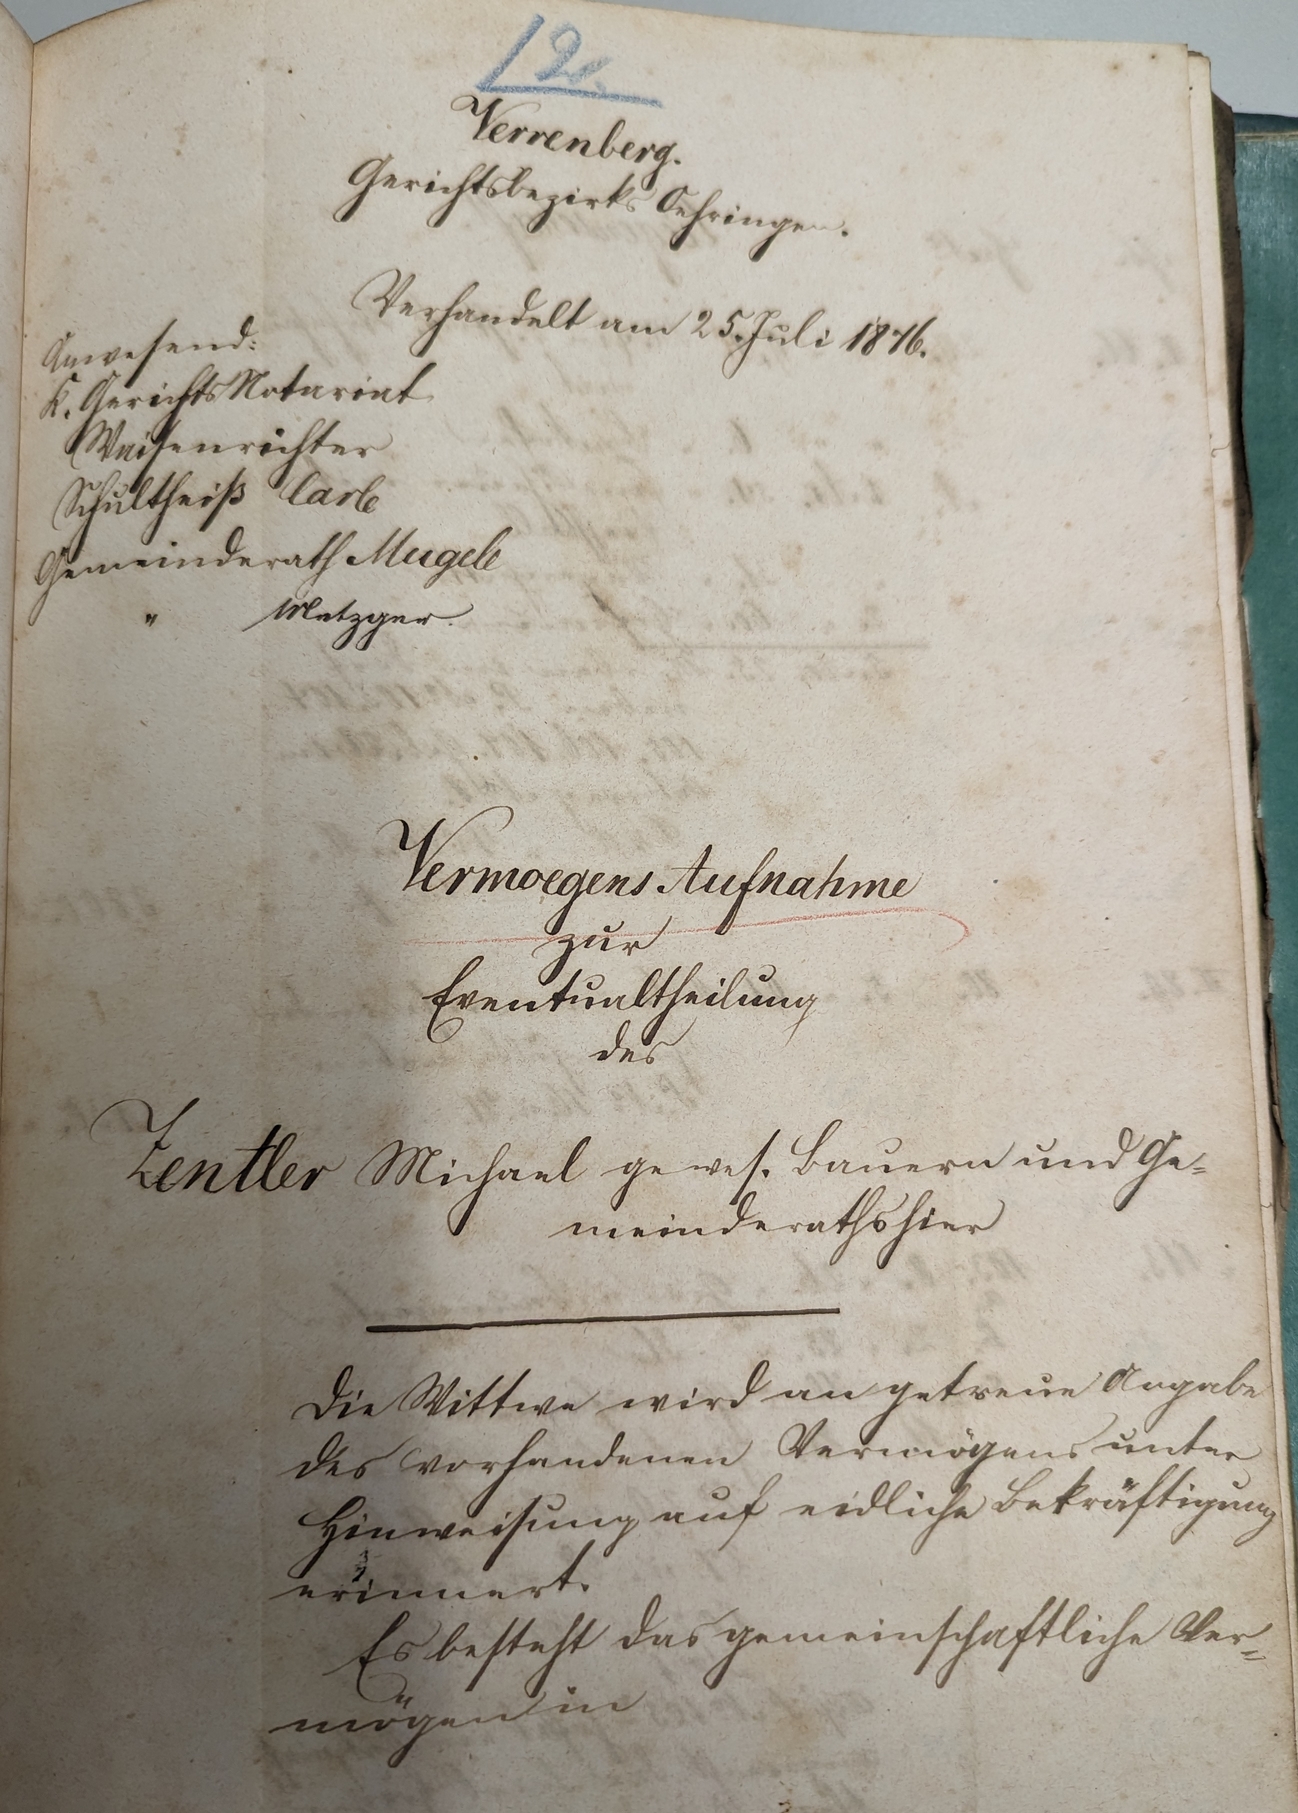 12.
Verrenberg.
Gerichtsbezirks Oehringen.
Verhandelt am 25. Juli 1876.
Anwesend:
K. GerichtsNotariat
Waisenrichter
Schultheiß Carle
Gemeinderath Mugele
" Metzger.
Vermoegens Aufnahme
zur
Eventualtheilung
des
Zentler Michael gewes. Bauern und Ge=
meinderaths hier
Die Wittwe wird an getreue Angabe
des vorhandenen Vermögens unter
Hinweisung auf eidliche Bekräftigung
erinnert.
Es besteht das gemeinschaftliche Ver=
mögen in